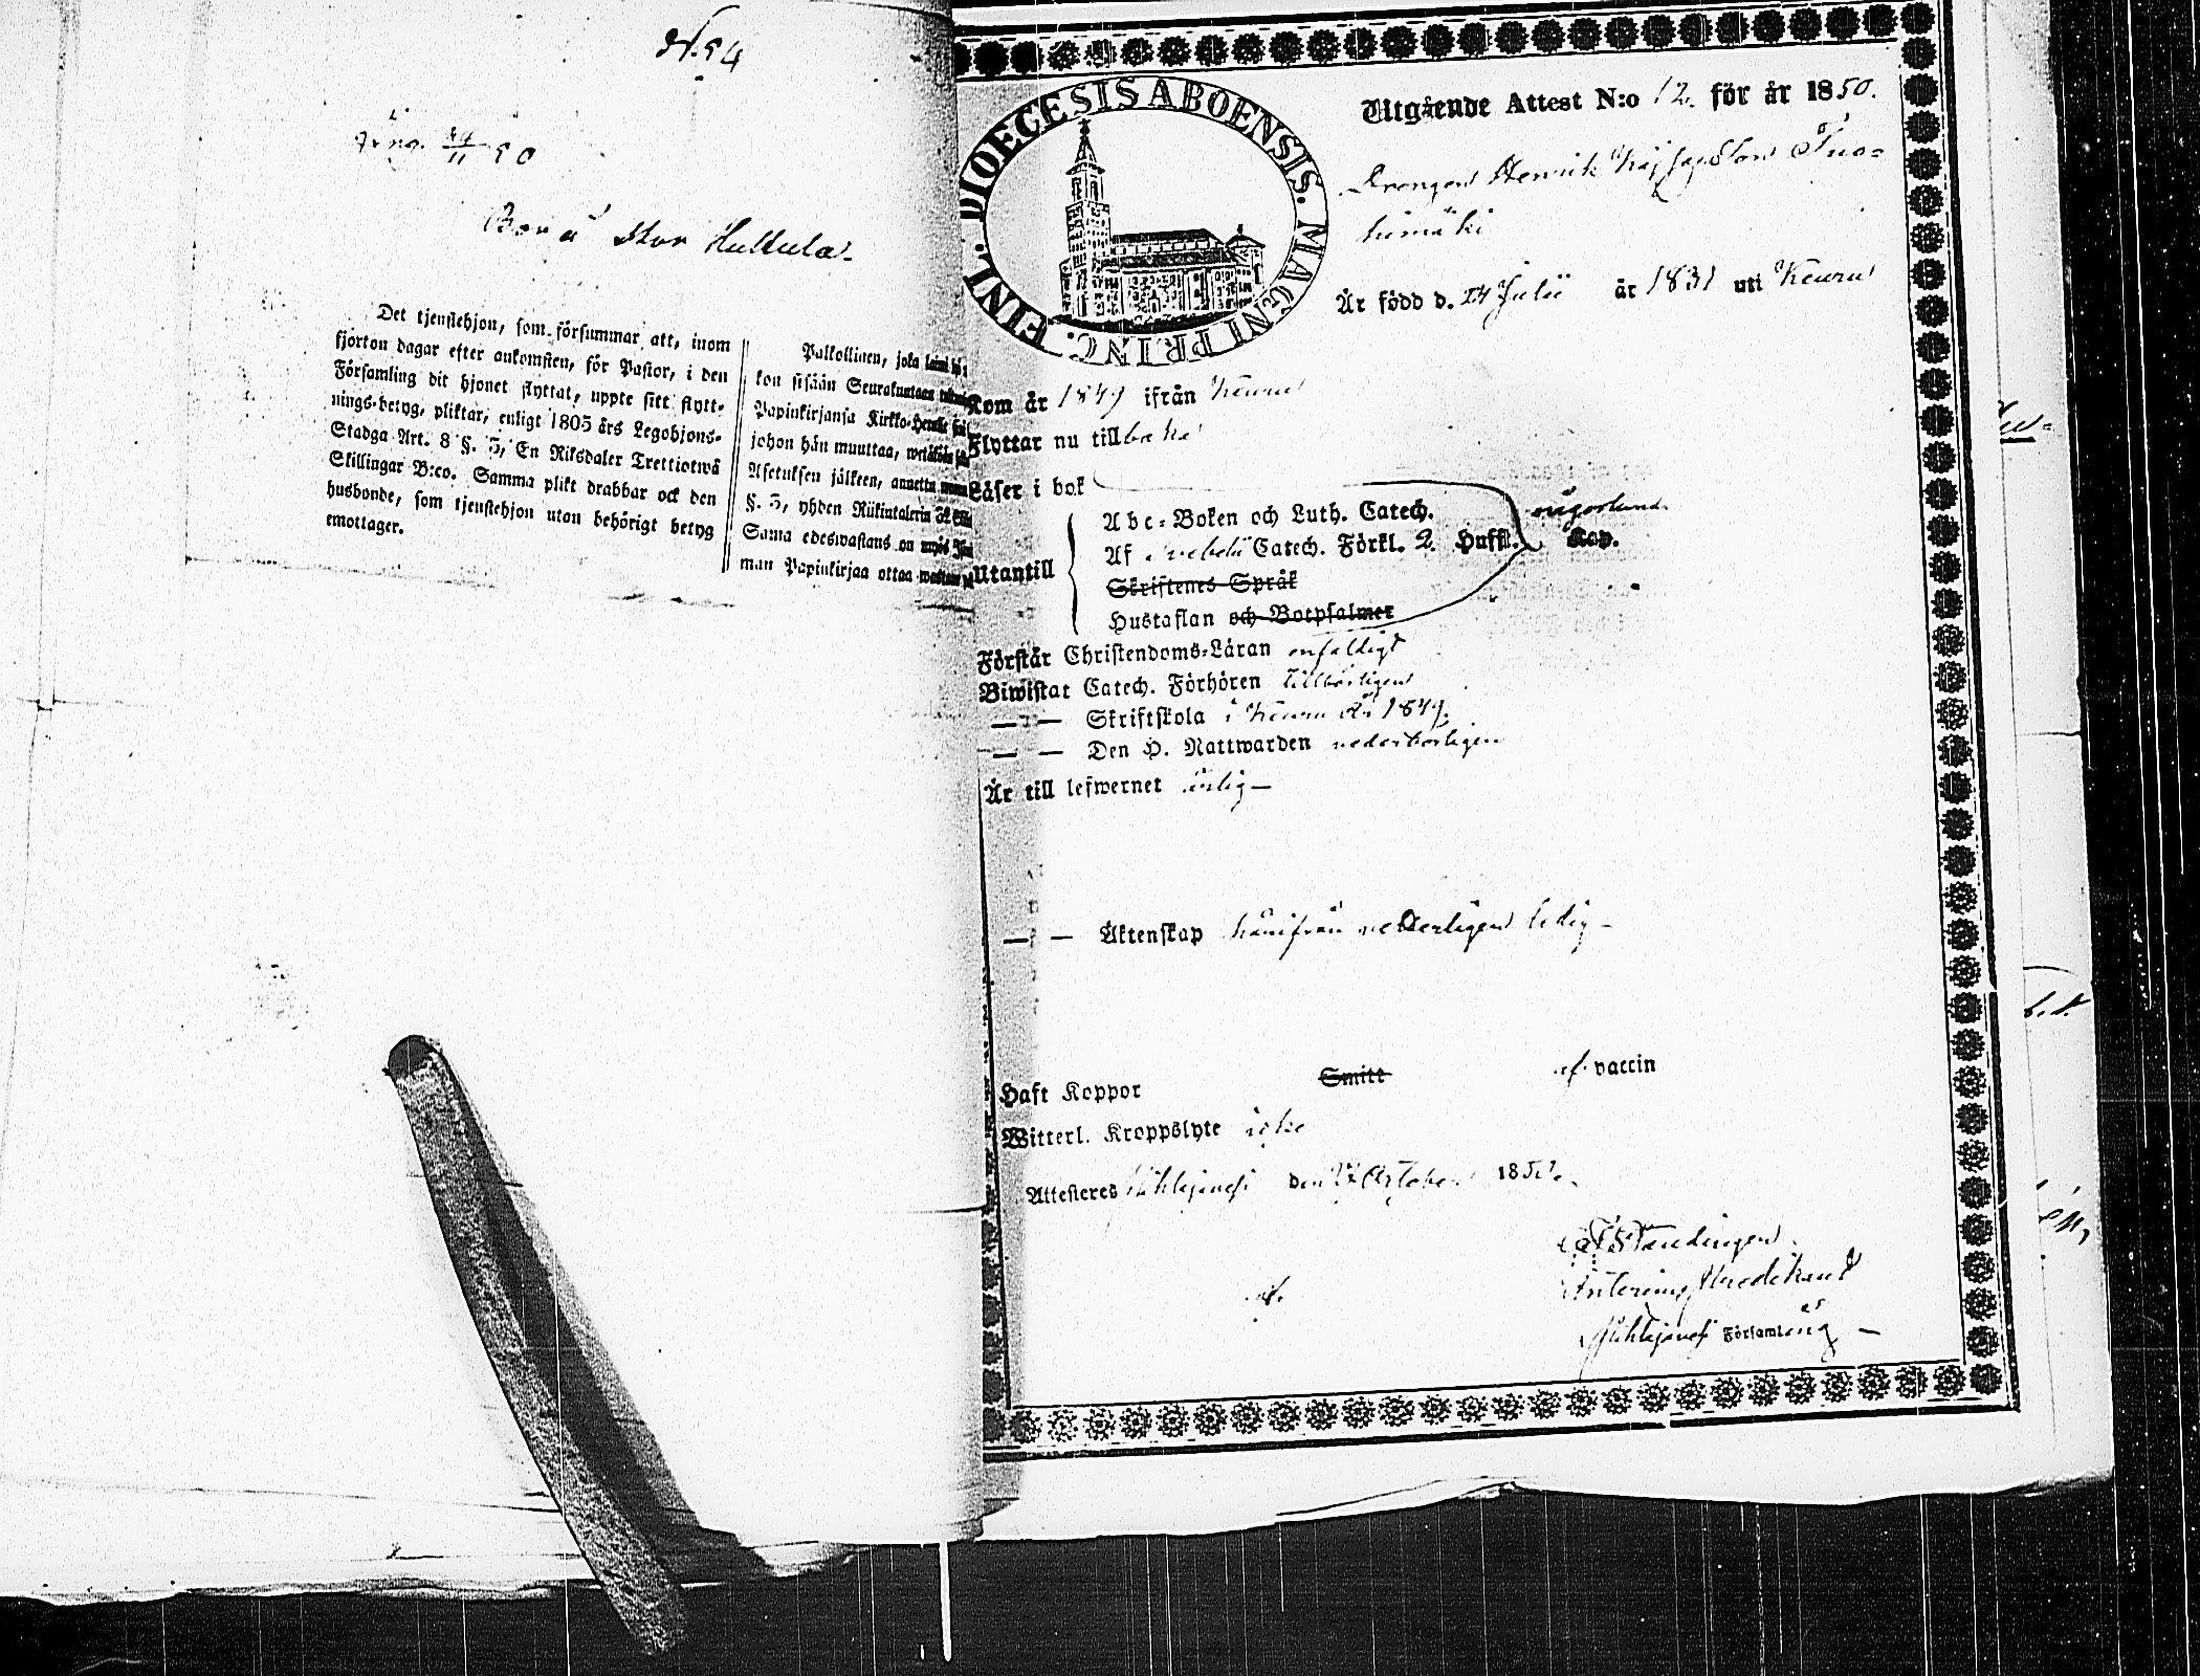 N. 54
Ing. 24/11 50
Bor å Stor Hulkula
Det tjenstehjon, som försummar att, inom
fjorton dagar efter ankomsten, för Pastor, i den
Församling dit hjonet flyttat, uppte sitt flytt-
nings-betyg, pliktar, enligt 1805 års Legohjons-
Stadga Art. 8 §. 5, En Riksdaler Trettiotwå
Skillingar B:co. Samma plikt drabbar ock den
husbonde, som tjenstehjon utan behörigt betyg
emottager.
Palkollinen, joka
kon sisään Seurakuntaan
Papinkirjansa Kirkko-Herralle
johon hän muuttaa,
Asetuksen jälkeen, annettu
§. 5, yhden Riikintalerin
Sama edeswastaus on myös
man Papinkirjaa ottaa
DIOECESIS ABOENSIS. MAGNI PRINC. FINL.
Utgående Attest N:o 12. för år 1850.
Drengen Henrik Tuo=
himäki
Är född d. 24 Julii år 1831 uti Keuru
Kom år 1849 ifrån Keuru
Flyttar nu tillbaka
Läser i bok
Utantill
Abc-Boken och Luth. Catech.
Af Svebelii Catech. Förkl. 2. Hufst. Kap.
Skriftenes Språk
Hustaflan och Botpsalmer
Förstår Christendoms-Läran enfaldigt
Biwistat Catech. Förhören tillbörligen
— — Skriftskola i Keuru år 1849.
— — Den H. Nattwarden vederbörligen
Är till lefwernet ärlig —
— — Äktenskap härifrån veterligen ledig —
Haft Koppor Smitt af vaccin
Witterl. Kroppslyte icke
Attesteres den October 1850.
Interims Predikant
Församling —